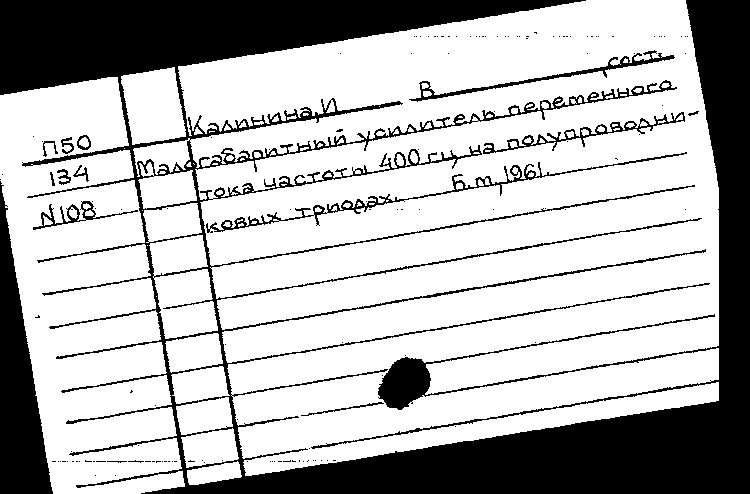 П50 Калинина, И В , сост.
134 Малогабаритный усилитель переменного
N108 тока частоты 400 гц, на полупроводни-
ковых триодах. Б.м, 1961.